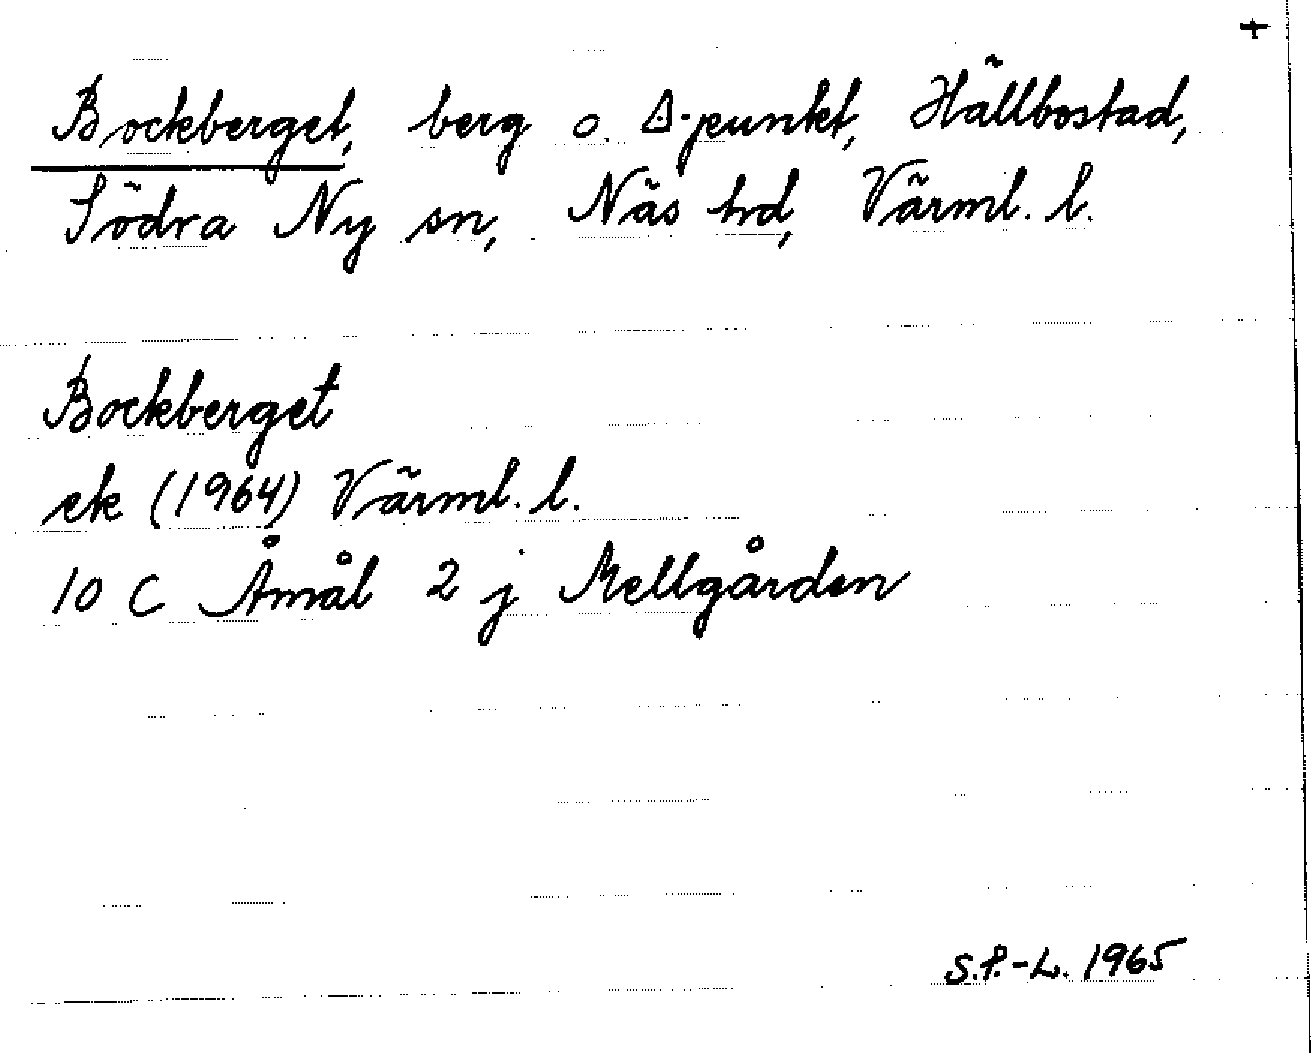 +
Bockberget, berg o. Δ-punkt, Hällbostad,
Södra Ny sn, Näs hd, Värml. l.
Bockberget
ek (1964) Värml. l.
10 C Åmål 2 j Mellgården
S.P.-L. 1965